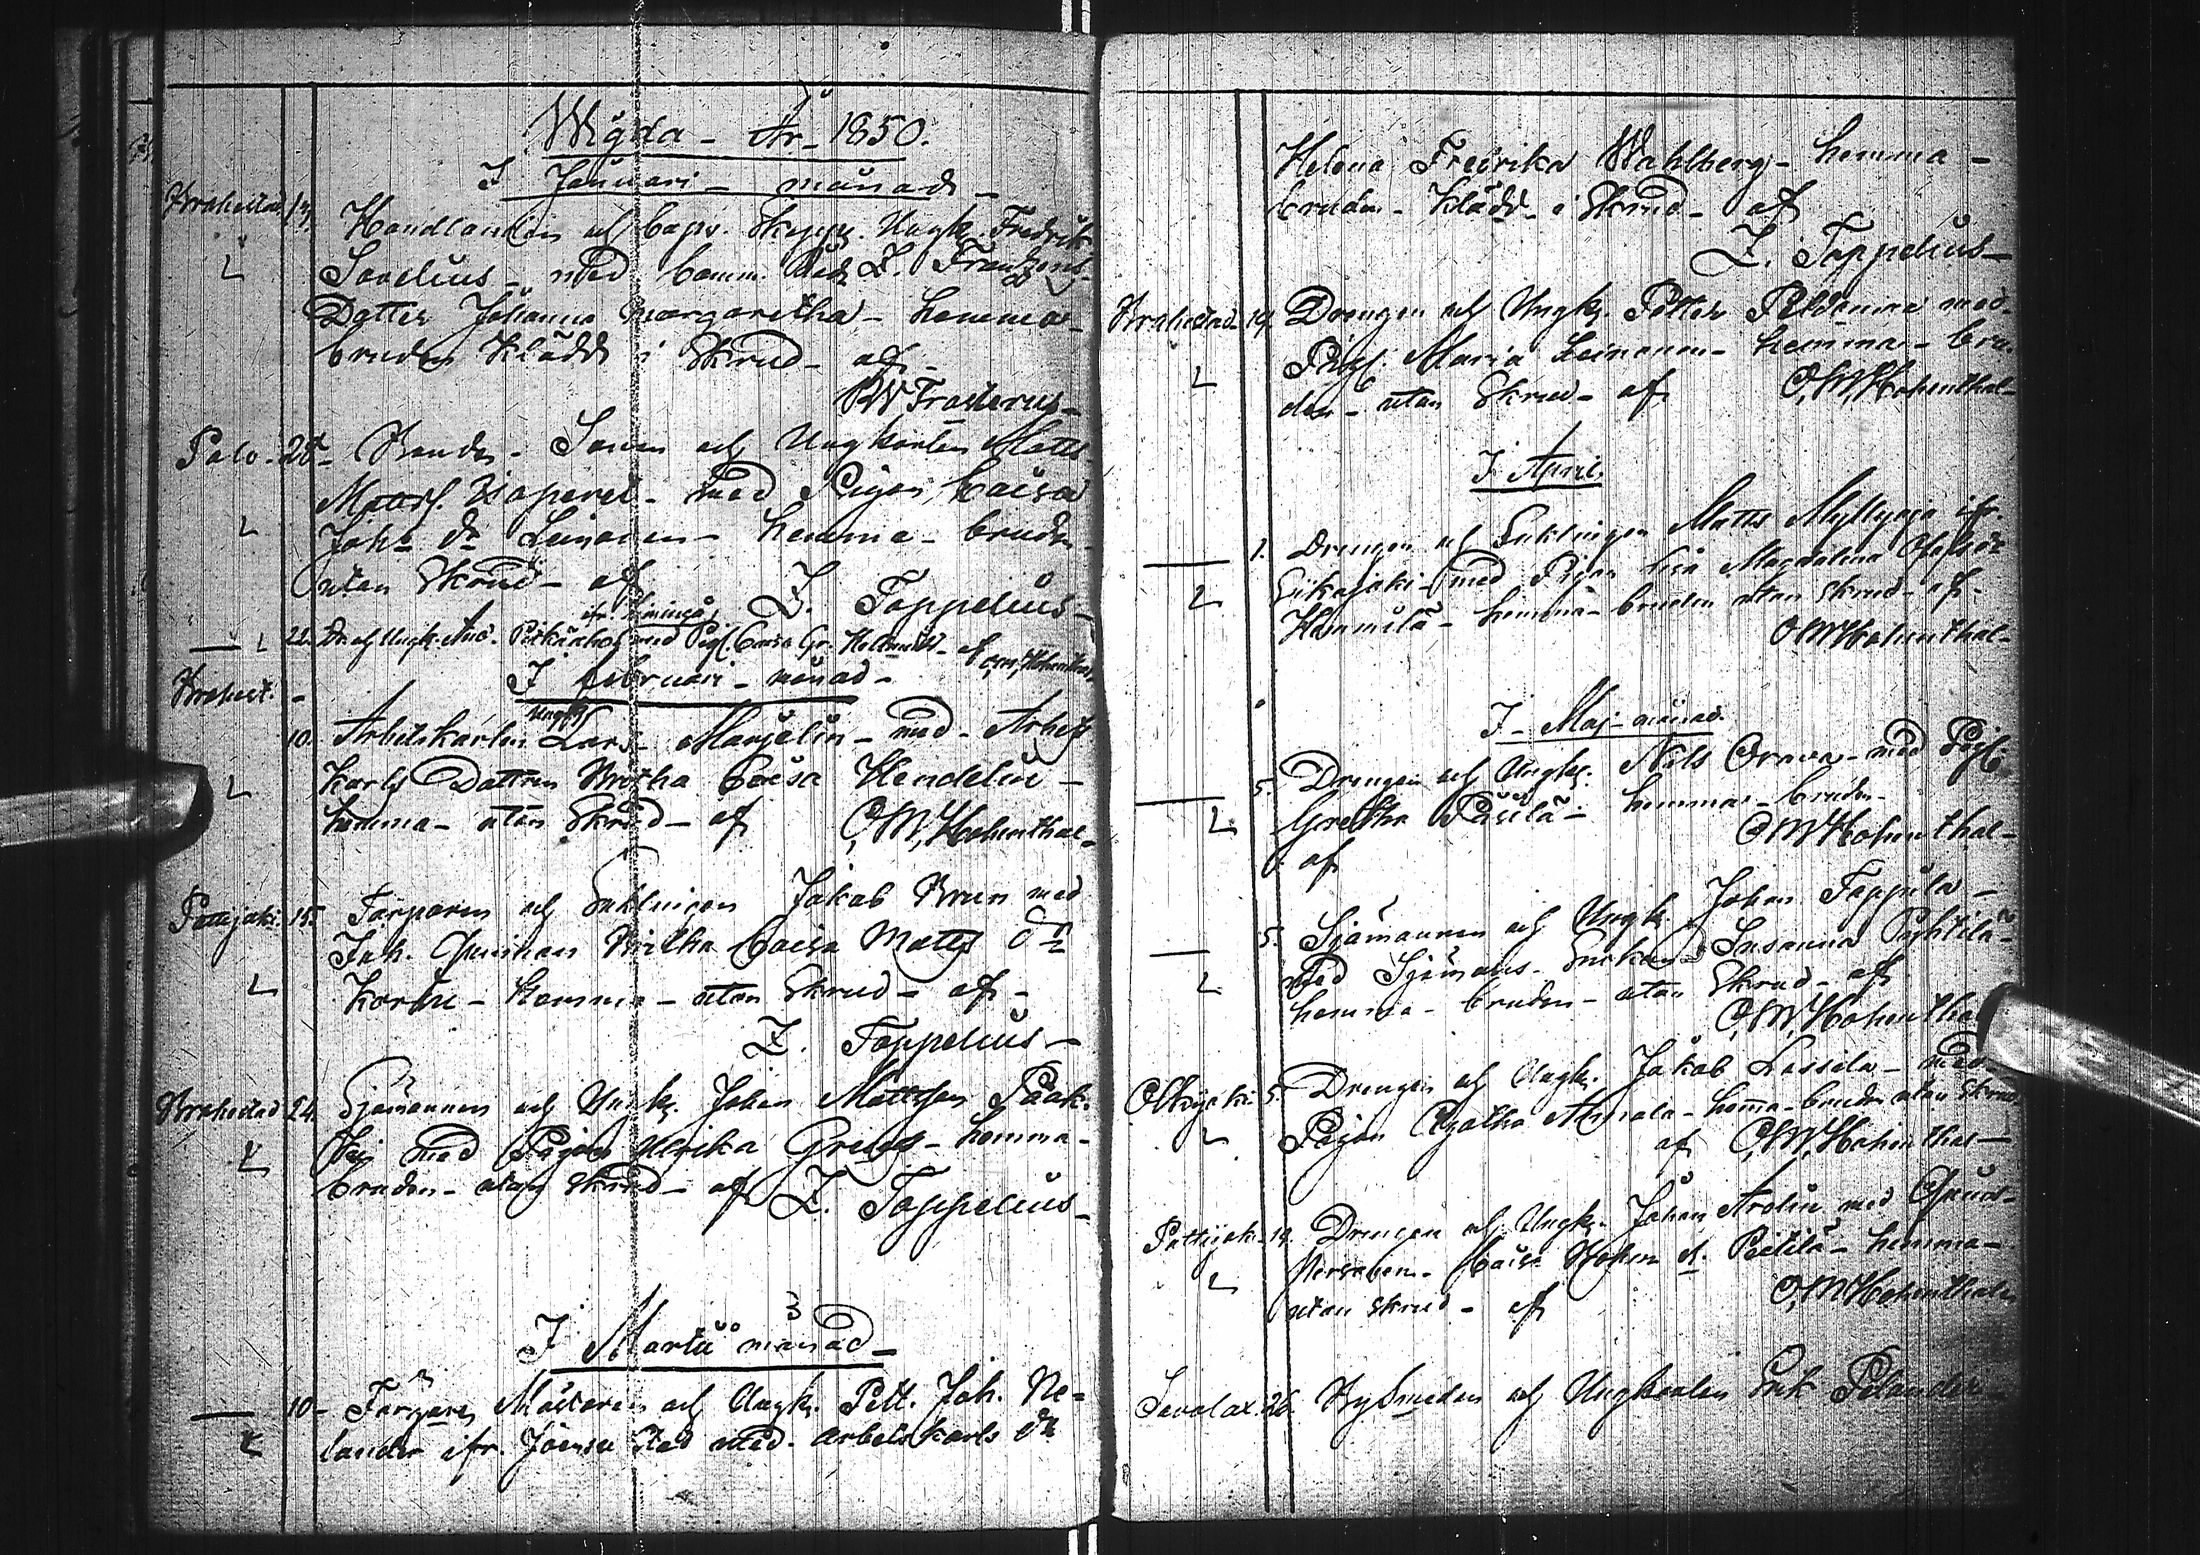 Wigda - År - 1850.
I Januari - månad -
Brahestad 13. Handlanden och Capv. Skepps. Ungk. Fredrik
Sovelius - med Comm. Råd Z. Franzens
Dotter Johanna Margaretha - hemma -
bruden klädd i Skrud - af -
RWFrosterus -
Palo. 28 - Bonde - Sonen och Ungkarlen Matts
Matts. Haapavei - med Pigan Caisa
Joh: dr Leinonen - hemma - bruden
utan Skrud - af Z. Toppelius -
22. Dr. och Ungk. And. med Pig. Caisa Gr. - af
I februari - månad -
Brahest. -
10. Arbetskarlen Ungk. Lars Marjelin - med - Arbets
karls Dottren Britha Caisa Hendelin -
hemma - utan Skrud - af O,W,Hohenthal -
Pattijoki 15. Torparen och Enklingen Jakob Brun med
Inh. Qvinnan Britha Caisa Matts dr
- hemma - utan Skrud - af -
Z. Toppelius -
Brahestad 24. Sjömannen och Ungk. Johan Mattsson Paak-
med Pigan Ulrika - hemma -
bruden - utan skrud - af Z. Toppelius -
I Martii månad -
10 - Färgare Mästaren och Ungk. Pett. Joh. Ne=
lander ifr. Joensu Stad med Arbetskarls dr
Helena Fredrika Wahlberg - hemma -
bruden - klädd - i Skrud - af
Z. Toppelius -
Brahestad 19. Drengen och Ungk. Petter Peldonna med
Pig. Maria Leinonen - hemma - bru-
den - utan Skrud - af O,W,Hohenthal -
I April.
1. Drengen och Enklingen Matts Myllyoja ifr.
Siikajoki - med Pigan Lisa Magdalena
- hemma - bruden utan skrud - af -
OWHohenthal -
I - Maj - månad.
5. Drengen och Ungk. Nils Orava - med Pig.
Gretha - hemma - bruden -
af OWHohenthal -
5. Sjömannen och Ungk. Johan Toppila -
med Sjömans - Enkan Susanna Pyhtilä -
hemma - bruden - utan Skrud - af
O,W,Hohenthal
Olkijoki 5. Drengen och Ungk. Jakob Lassila - med
Pigan Agatha Annala - hema - bruden utan skrud
af O,W,Hohenthal -
Pattijoki 19. Drengen och Ungk. Johan Arolin med Qvins-
Personen - Caisa d. - hemma -
utan skrud - af O,WHohenthal
Savolax. 26. Bysmeden och Ungkarlen Erik Pelander